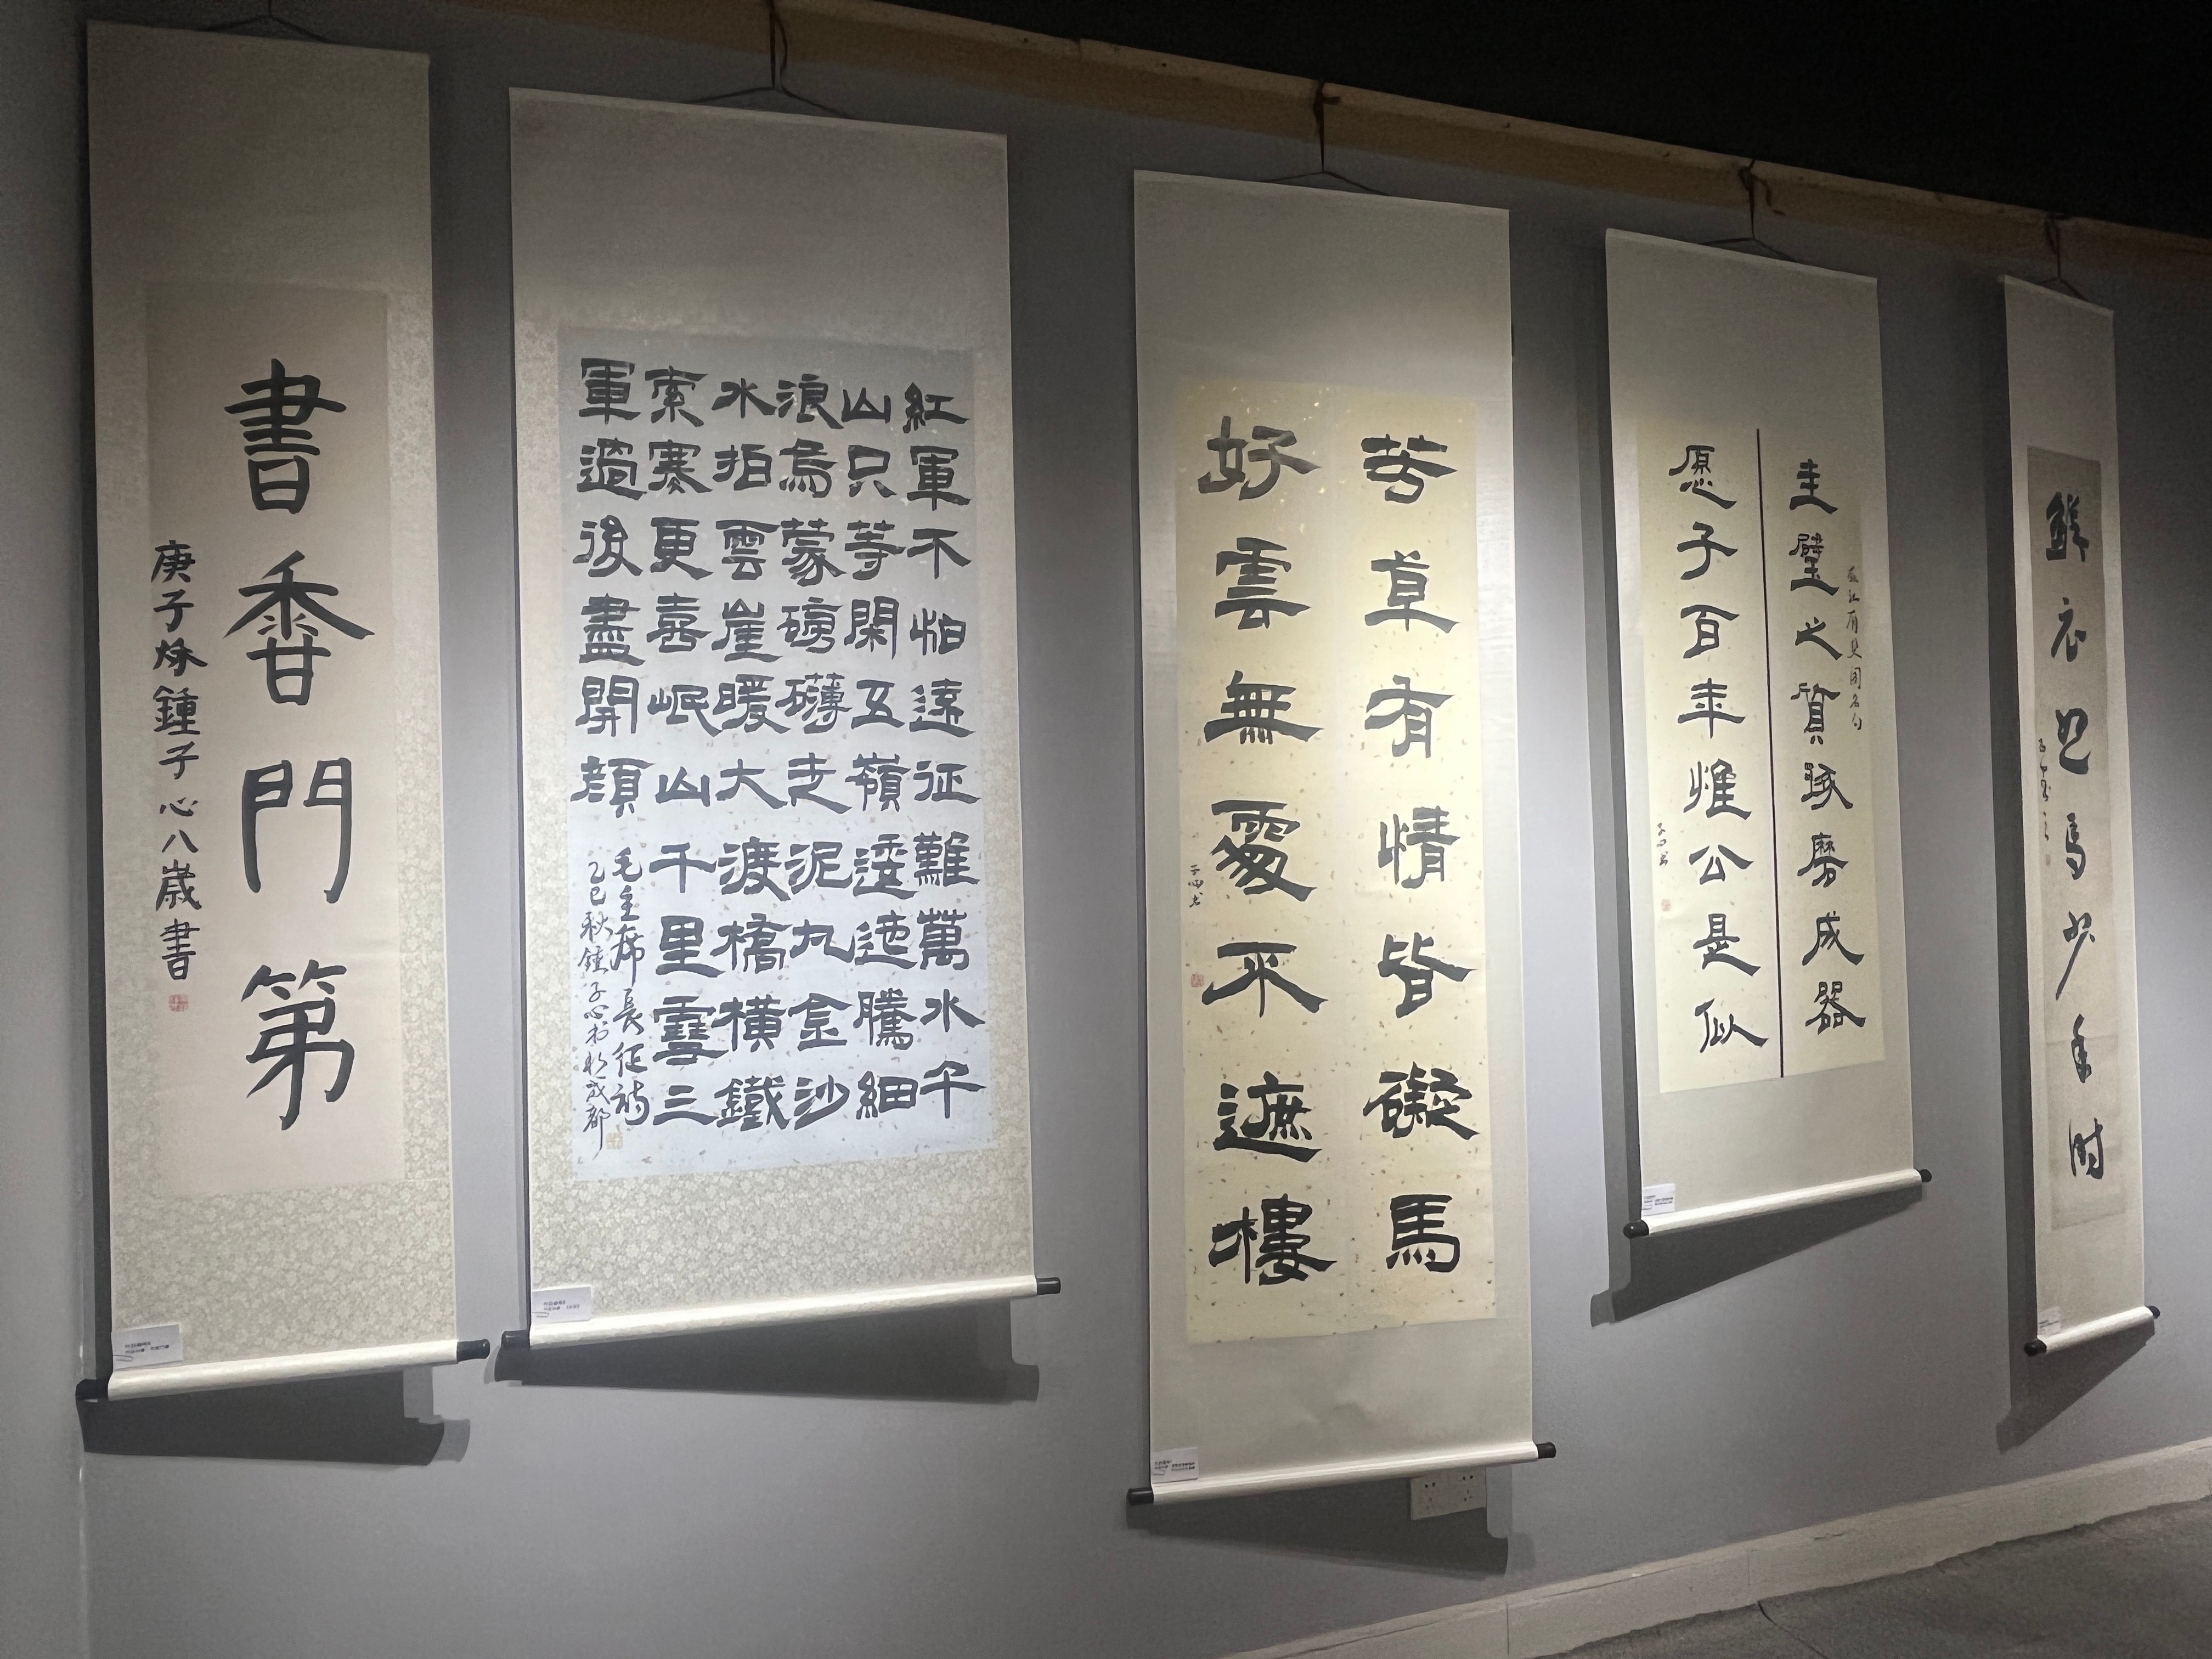 書香門第
庚子秋鍾子心八歲書
紅軍不怕遠征難萬水千
山只等閑五嶺逶迤騰細
浪烏蒙磅礴走泥丸金沙
水拍雲崖暖大渡橋橫鐵
索寒更喜岷山千里雪三
軍過後盡開顏
毛主席長征詩
乙巳秋鍾子心書於成都
芳草有情皆礙馬
好雲無處不遮樓
圭璧之質琢磨成器
愿子百年惟公是似
鮮衣怒馬少年时